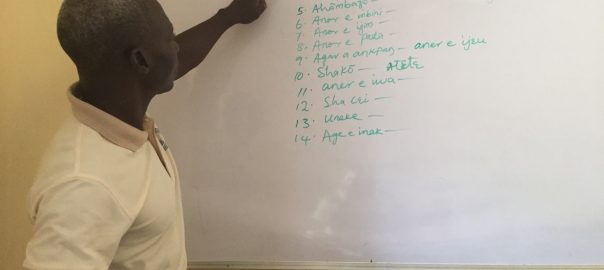 5. Ahômbazô
6. Aner e mbini -
7. Aner e ijoo -
8. Aner e fada -
9. Agara ankpan - aner e ijeu
10. Shakō - Atete
11. aner e iwa -
12. Sha cei -
13. Uneke -
14. Age e inek -